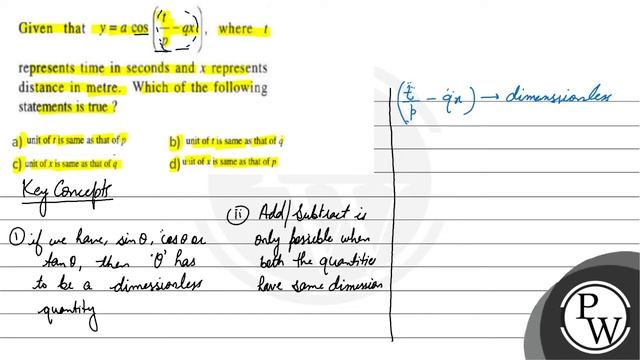 Given that y = a cos (t/p − qx), where t
represents time in seconds and x represents
distance in metre. Which of the following
statements is true ?
a) unit of t is same as that of p
b) unit of t is same as that of q
c) unit of x is same as that of q
d) unit of x is same as that of p
Key Concepts
① if we have, sinθ, cosθ or
tanθ, then 'θ' has
to be a dimensionless
quantity
ⓘⓘ Add/Subtract is
only possible when
both the quantities
have same dimension
(t/p − qx) → dimensionless
PW